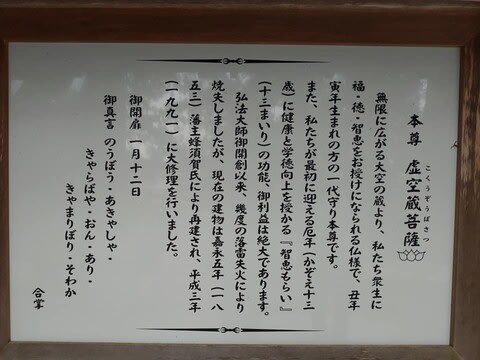 本尊 虚空蔵菩薩
こくうぞうぼさつ
無限に広がる大空の蔵より、私たち衆生に
福・徳・智恵をお授けになられる仏様で、丑年
寅年生まれの方の一代守り本尊です。
また、私たちが最初に迎える厄年（かぞえ十三
歳）に健康と学徳向上を授かる『智恵もらい』
（十三まいり）の功能、御利益は絶大であります。
弘法大師御開創以来、幾度の落雷失火により
焼失しましたが、現在の建物は嘉永五年（一八
五三）藩主蜂須賀氏により再建され、平成三年
（一九九一）に大修理を行いました。
御開扉 一月十二日
御真言 のうぼう・あきゃしゃ・
きゃらばや・おん・あり・
きゃまりぼり・そわか
合掌